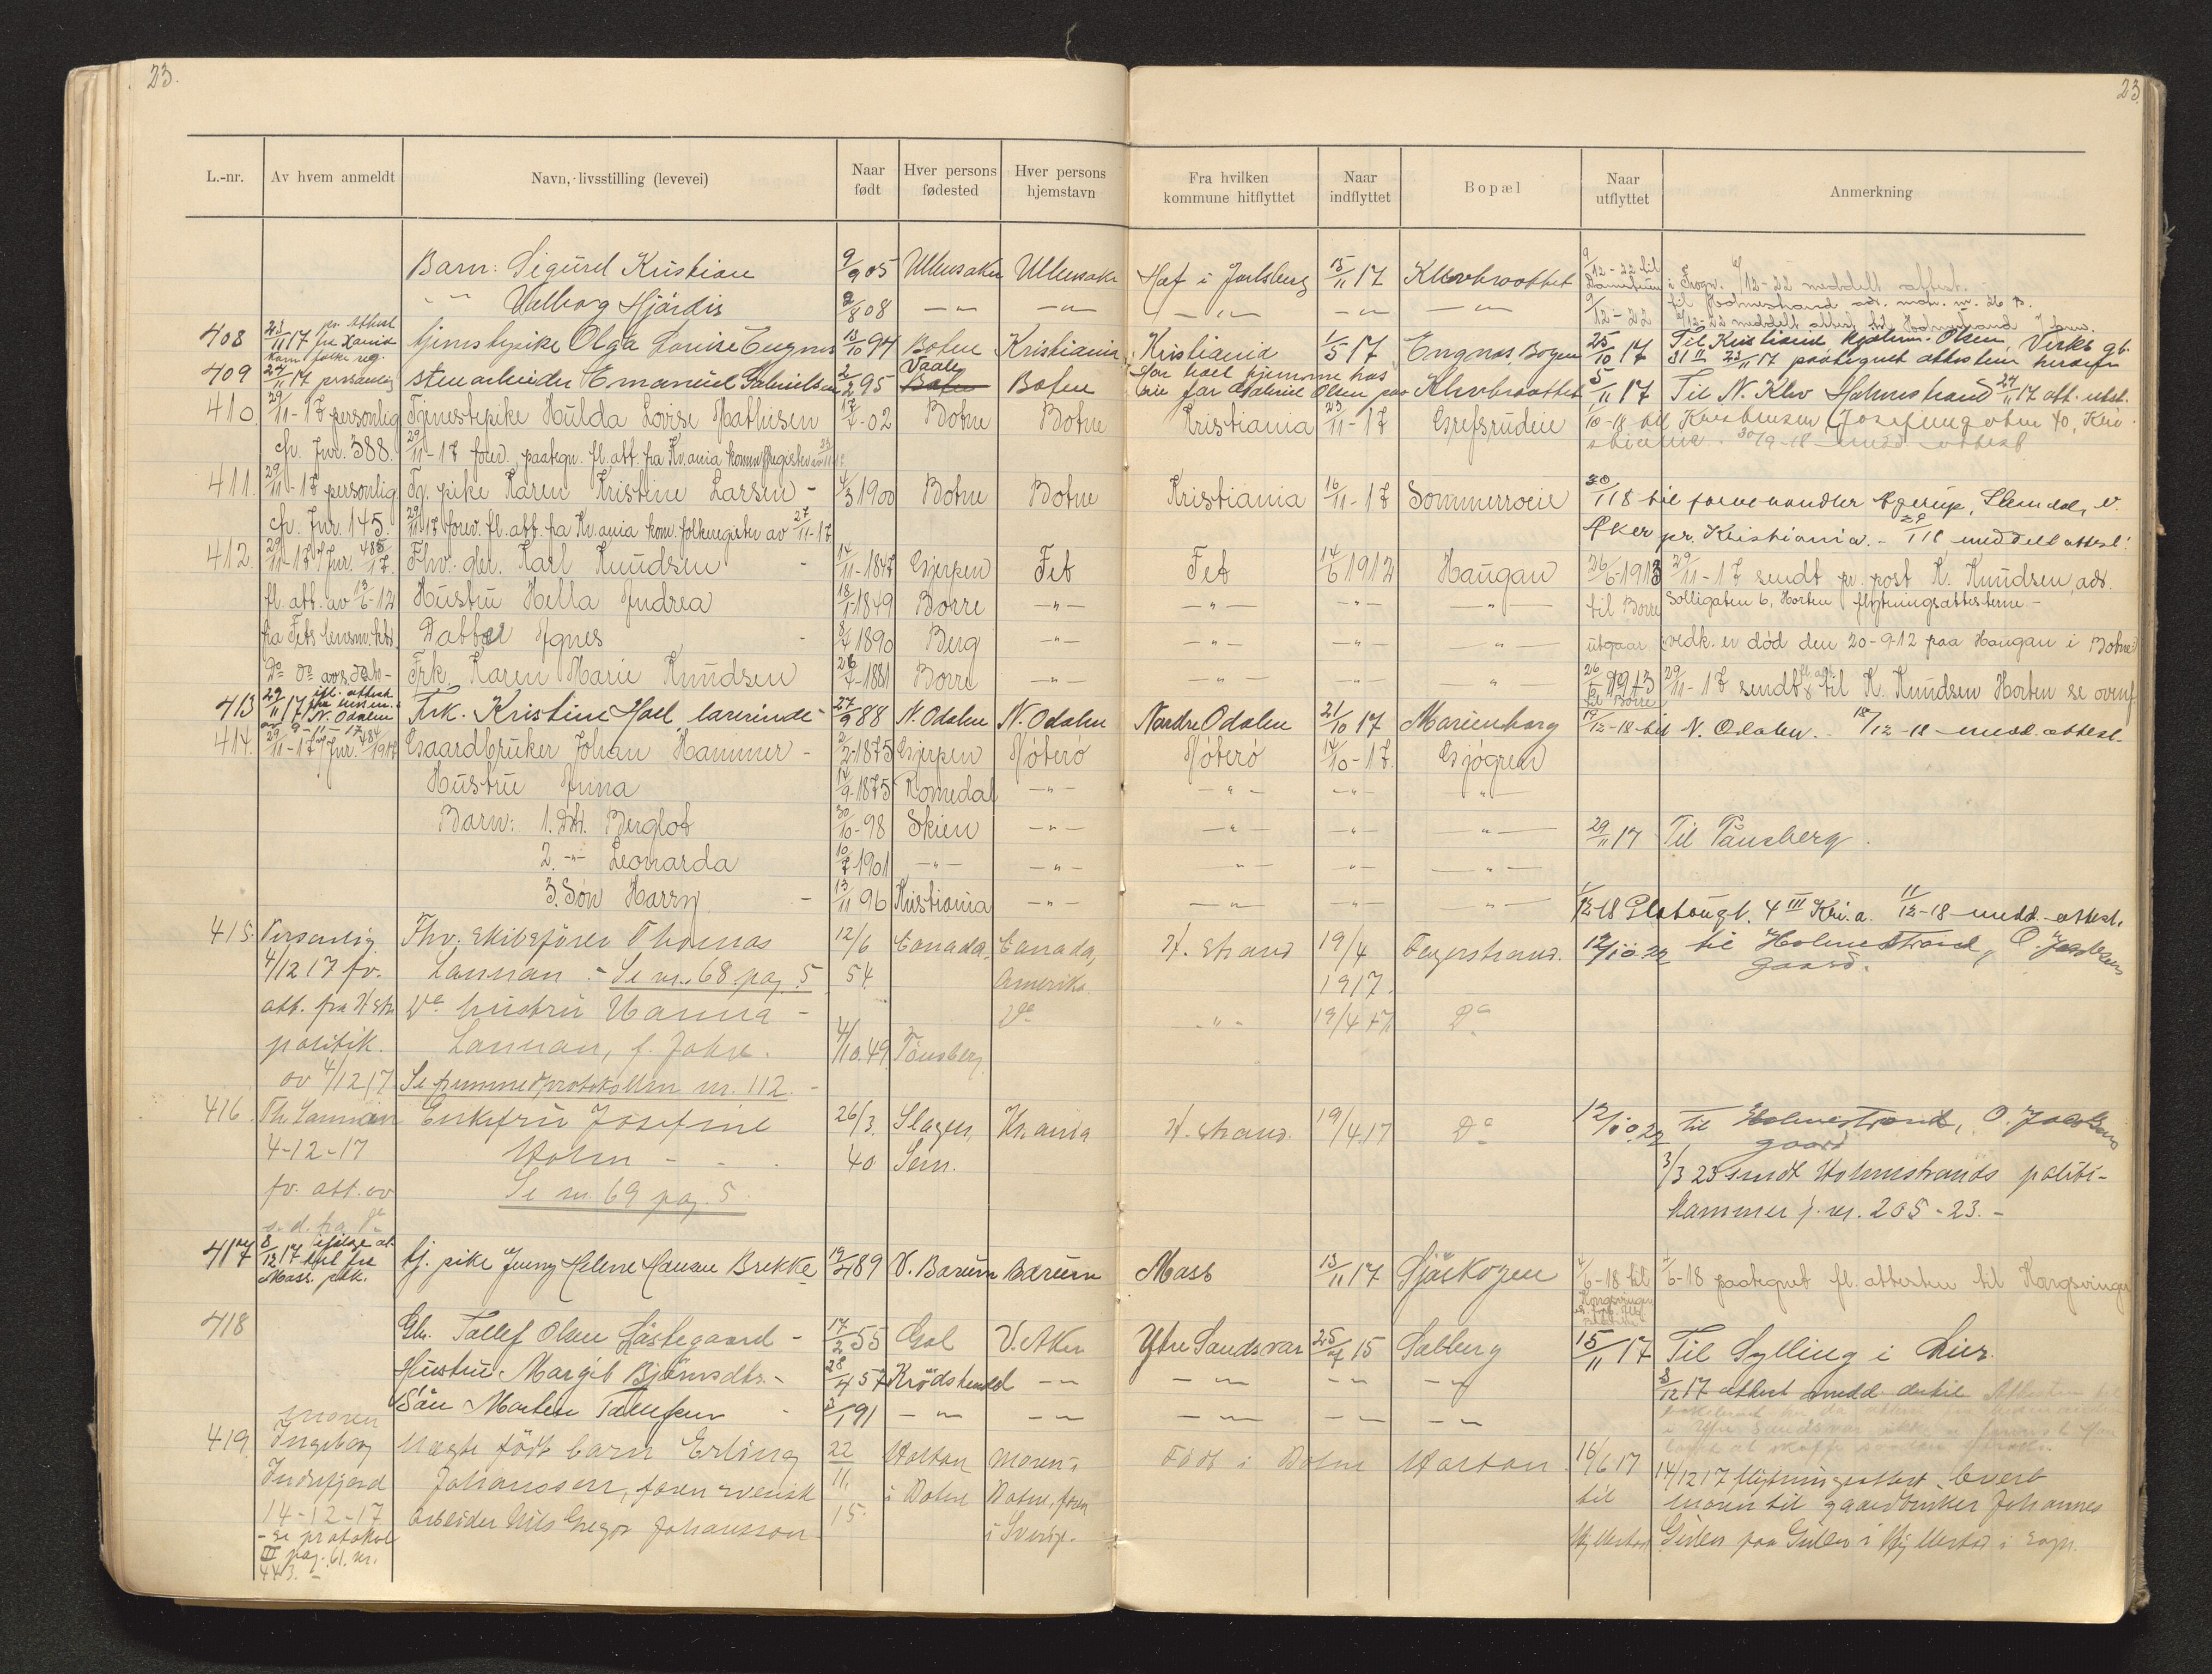 23.
23.
L.-nr. Av hvem anmeldt Navn, livsstilling (levevei) Naar født Hver persons fødested Hver persons hjemstavn Fra hvilken kommune hitflyttet Naar indflyttet Bopæl Naar utflyttet Anmerkning
Barn: Sigurd Kristian 9/9 05 Ullensaker Ullensaker Hof i Jarlsberg 15/11 17 Klevbraattet 9/12-22 til i Sogn. 12-22 meddelt attest.
-"- Valborg Hjördis 2/8 08 -"- -"- -"- -"- -"- 9/12-22 til Holmestrand
12-22 meddelt attest til Holmestrand
408 23/11 17 pr. attest fra Xania kom. folke reg. tjenestepike Olga Louise Engnæs 13/10 94 Botne Kristiania Kristiania 1/5 17 Engnæs Bogen 25/10 17 Til Kristiania Hjalm. Olsen, Verks gt.
31 II 23/11 17 paategnet attesten herfra
409 24/11 17 personlig stenarbeider Emanuel Gabrielsen 2/2 95 Vaale Botne Botne Har hat hjemme hos sin far Gabriel Olsen paa Klevbraattet 5/11 17 Til N. Klev Holmestrand 24/11 17 att. utst.
410. 29/11-17 personlig Tjenestepike Hulda Lovise Mathisen 17/7-02 Botne Botne Kristiania 23/11-17 Gretsrudeie 1/10-18 til Josefinegaten 40, Kri-
cfr. Jnr. 388. 29/11-17 forev. paategn. fl. att. fra Kr.ania komm. stiania. 30/9-18 medd. attest
411. 29/11-17 personlig Tj. pike Karen Kristine Larsen - 4/3 1900 Botne Botne Kristiania 16/11-17 Sommerroeie 30/1 18 til farvehandler Egerup, Slemdal, V.
cfr. Jnr. 145. 29/11.17 forev. fl. att. fra Kr.ania kom. folkeregister av 27/11-17 Aker pr. Kristiania. - 29/1 18 meddelt attest.
412. 29/11-17 Jnr. 485/17. Fhv. gbr. Karl Knudsen 14/11-1847 Gjerpen Fet Fet 14/6 1912 Haugan 26/6-1913 29/11-17 sendt pr. post K. Knudsen, adr.
fl. att. av 13/6-12 Hustru Hella Andrea 18/1-1849 Borre -"- -"- -"- -"- til Borre Solligaten 6, Horten flytningsattesterne -
fra Fets lensm. ktr. Datter Agnes 8/7 1890 Berg -"- -"- -"- -"- utgaar vedk. er död den 20-9-12 paa Haugan i Botne
Do Do avs. dato - Frk. Karen Marie Knudsen 28/7-1881 Borre -"- -"- -"- -"- 26/6 1913 til Borre 29/11-17 sendt fl. att. til K. Knudsen Horten se ovenf.
413 29/11 17 ifl. attest fra lensm. i N. Odalen av 9-11-17 Frk. Kristine Hoel lærerinde - 27/9 88 N. Odalen N. Odalen Nordre Odalen 21/10 17 Marienborg 19/12-18 til N. Odalen. 18/12-18 medd. attest.
414. 29/11-17 Jnr. 484/1917 Gaardbruker Johan Hammer - 2/2-1875 Gjerpen Nöterö Nöterö 14/10-17. Gjögrein
Hustru Anna 14/9-1875 Romedal -"- -"- -"- -"-
Barn: 1. Dtr. Berglot 30/10-98 Skien -"- -"- -"- -"- 29/11 17 Til Tönsberg.
2. -"- Leonarda 10/7 1901 -"- -"- -"- -"- -"-
3. Sön Harry 13/11 96 Kristiania -"- -"- -"- -"- 1/12-18 4 III Kr.a. 11/12-18 medd. attest.
415. Personlig Fhv. skibsförer Thomas 12/6 Canada, Canada, H. strand 19/4 Fegerstrand. 12/10 22 til Holmestrand, O. Jacobsens
4/12 17 fv. Lannan. - Se nr. 68 pag. 5 54. Amerika. 1917. gaard.
att. fra H.str. Do hustru Hanna - Do -"- 19/4 17 Do
politik. Lannan, f. Jahre. 4/10.49 Tönsberg
av 4/12 17. Se fremmedprotokollen nr. 112. -
416. Th. Lannan Enkefru Josefine 26/3. Slagen, Kr.ania H. strand. 19/4 17 Do 12/10 22 til Holmestrand, O. Jacobsens
4-12-17 Holm - 40 Sem. gaard
fv. att. av Se nr. 69 pag. 5. 3/3 23 sendt Holmestrands politi-
s. d. fra Do kammer j. nr. 205-23. -
417 8/12 17 ifölge attest fra Moss. pkk. tj. pike Jenny Helene Hansen Brekke 19/4 89 V. Bærum Bærum Moss 13/11 17 Sjöskogen 4/6-18 til Kongsvinger 7/6-18 paategnet fl. attesten til Kongsvinger
418 Gbr. Tollef Olsen Gåstegaard - 17/2 55 Gol V. Aker Ytre Sandsvær 25/4 15 Solberg 15/11 17 Til Sylling i Lier.
Hustru Margit Björnsdtr. - 28/4 57 Krödsherad -"- -"- -"- -"- 8/12 17 attest medd. dertil
Sön Morten Tollefsen - 3/1 91 -"- -"- -"- -"- -"-
419. moren Ingeborg Uægte födt barn Erling 22/11. Horton Moren i Född i Botne Horton. 16/6 17
Indrefjord Johansson, faren svensk i Botne Botne, faren til 14/12 17 flytningsattest levert
14-12-17 arbeider Nils Greger Johansson 15. i Sverige. Hyllestad moren til gaardbruker Johannes
- se protokol paa i Hyllestad i Sogn.
III pag. 61. nr.
443. -